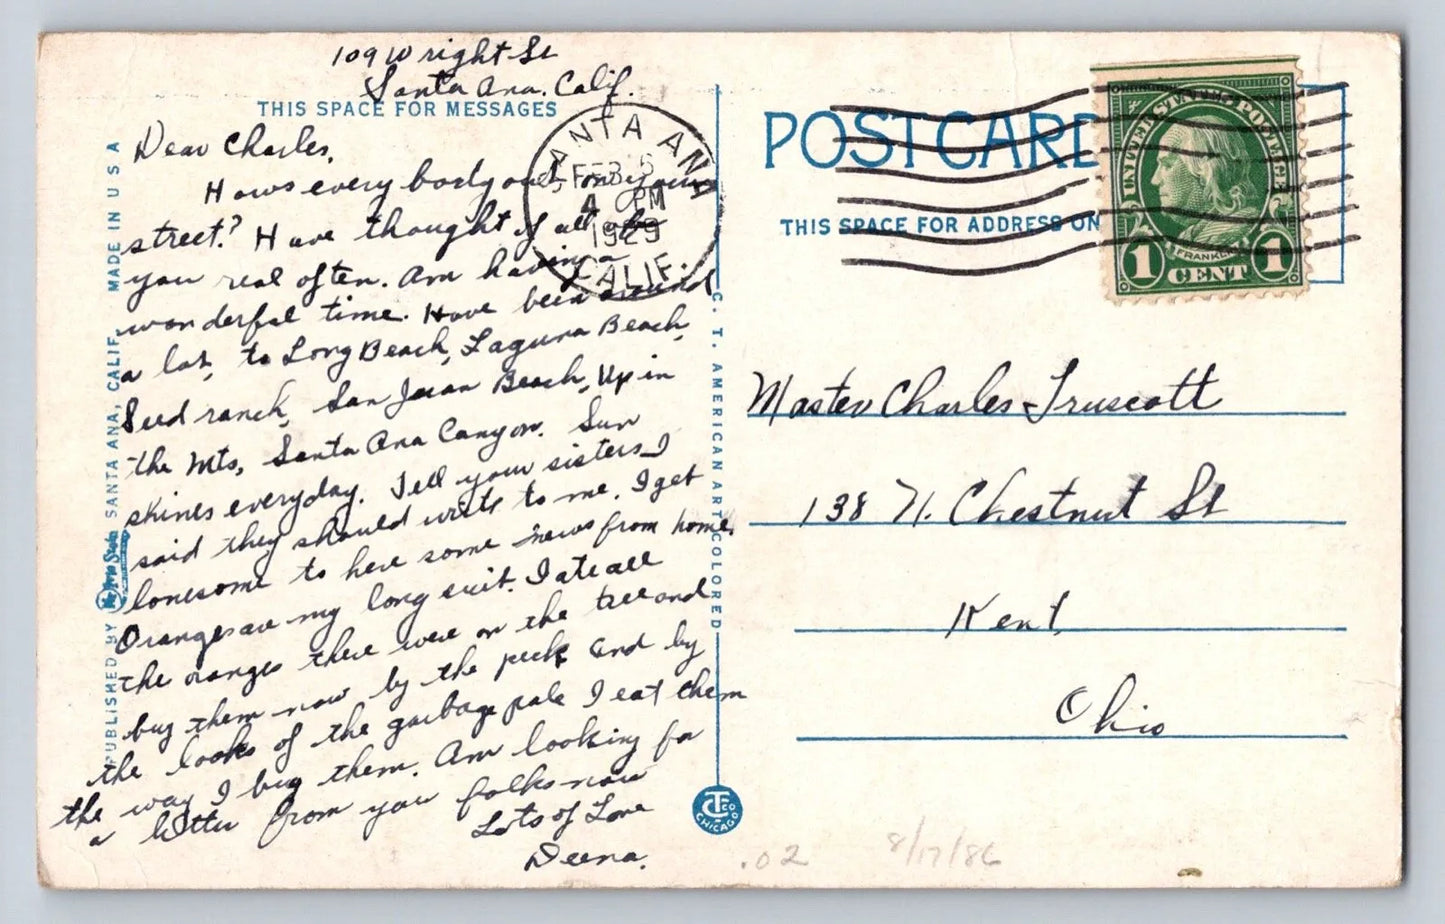 109 Wright St
Santa Ana. Calif.
THIS SPACE FOR MESSAGES
Dear Charles,
Hows every body out on your
street? Have thought of all
you real often. Am having a
wonderful time. Have been around
a lot, to Long Beach, Laguna Beach,
Seed ranch, San Juan Beach, Up in
the Mts, Santa Ana Canyon. Sun
shines everyday. Tell your sisters I
said they should write to me. I get
lonesome to here some news from home.
Oranges are my long suit. I ate all
the oranges there were on the tree and
buy them now by the peck and by
the looks of the garbage pale I eat them
the way I buy them. Am looking for
a letter from you folks now
Lots of Love
Deena.
PUBLISHED BY
SANTA ANA, CALIF. MADE IN U S A
C. T. AMERICAN ART COLORED
CT CO
CHICAGO
SANTA ANA
FEB 6
4 PM
1929
CALIF.
POST CARD
THIS SPACE FOR ADDRESS ON
UNITED STATES POSTAGE
FRANKLIN
1 CENT 1
Master Charles Truscott
138 N. Chestnut St
Kent
Ohio
.02 8/17/86